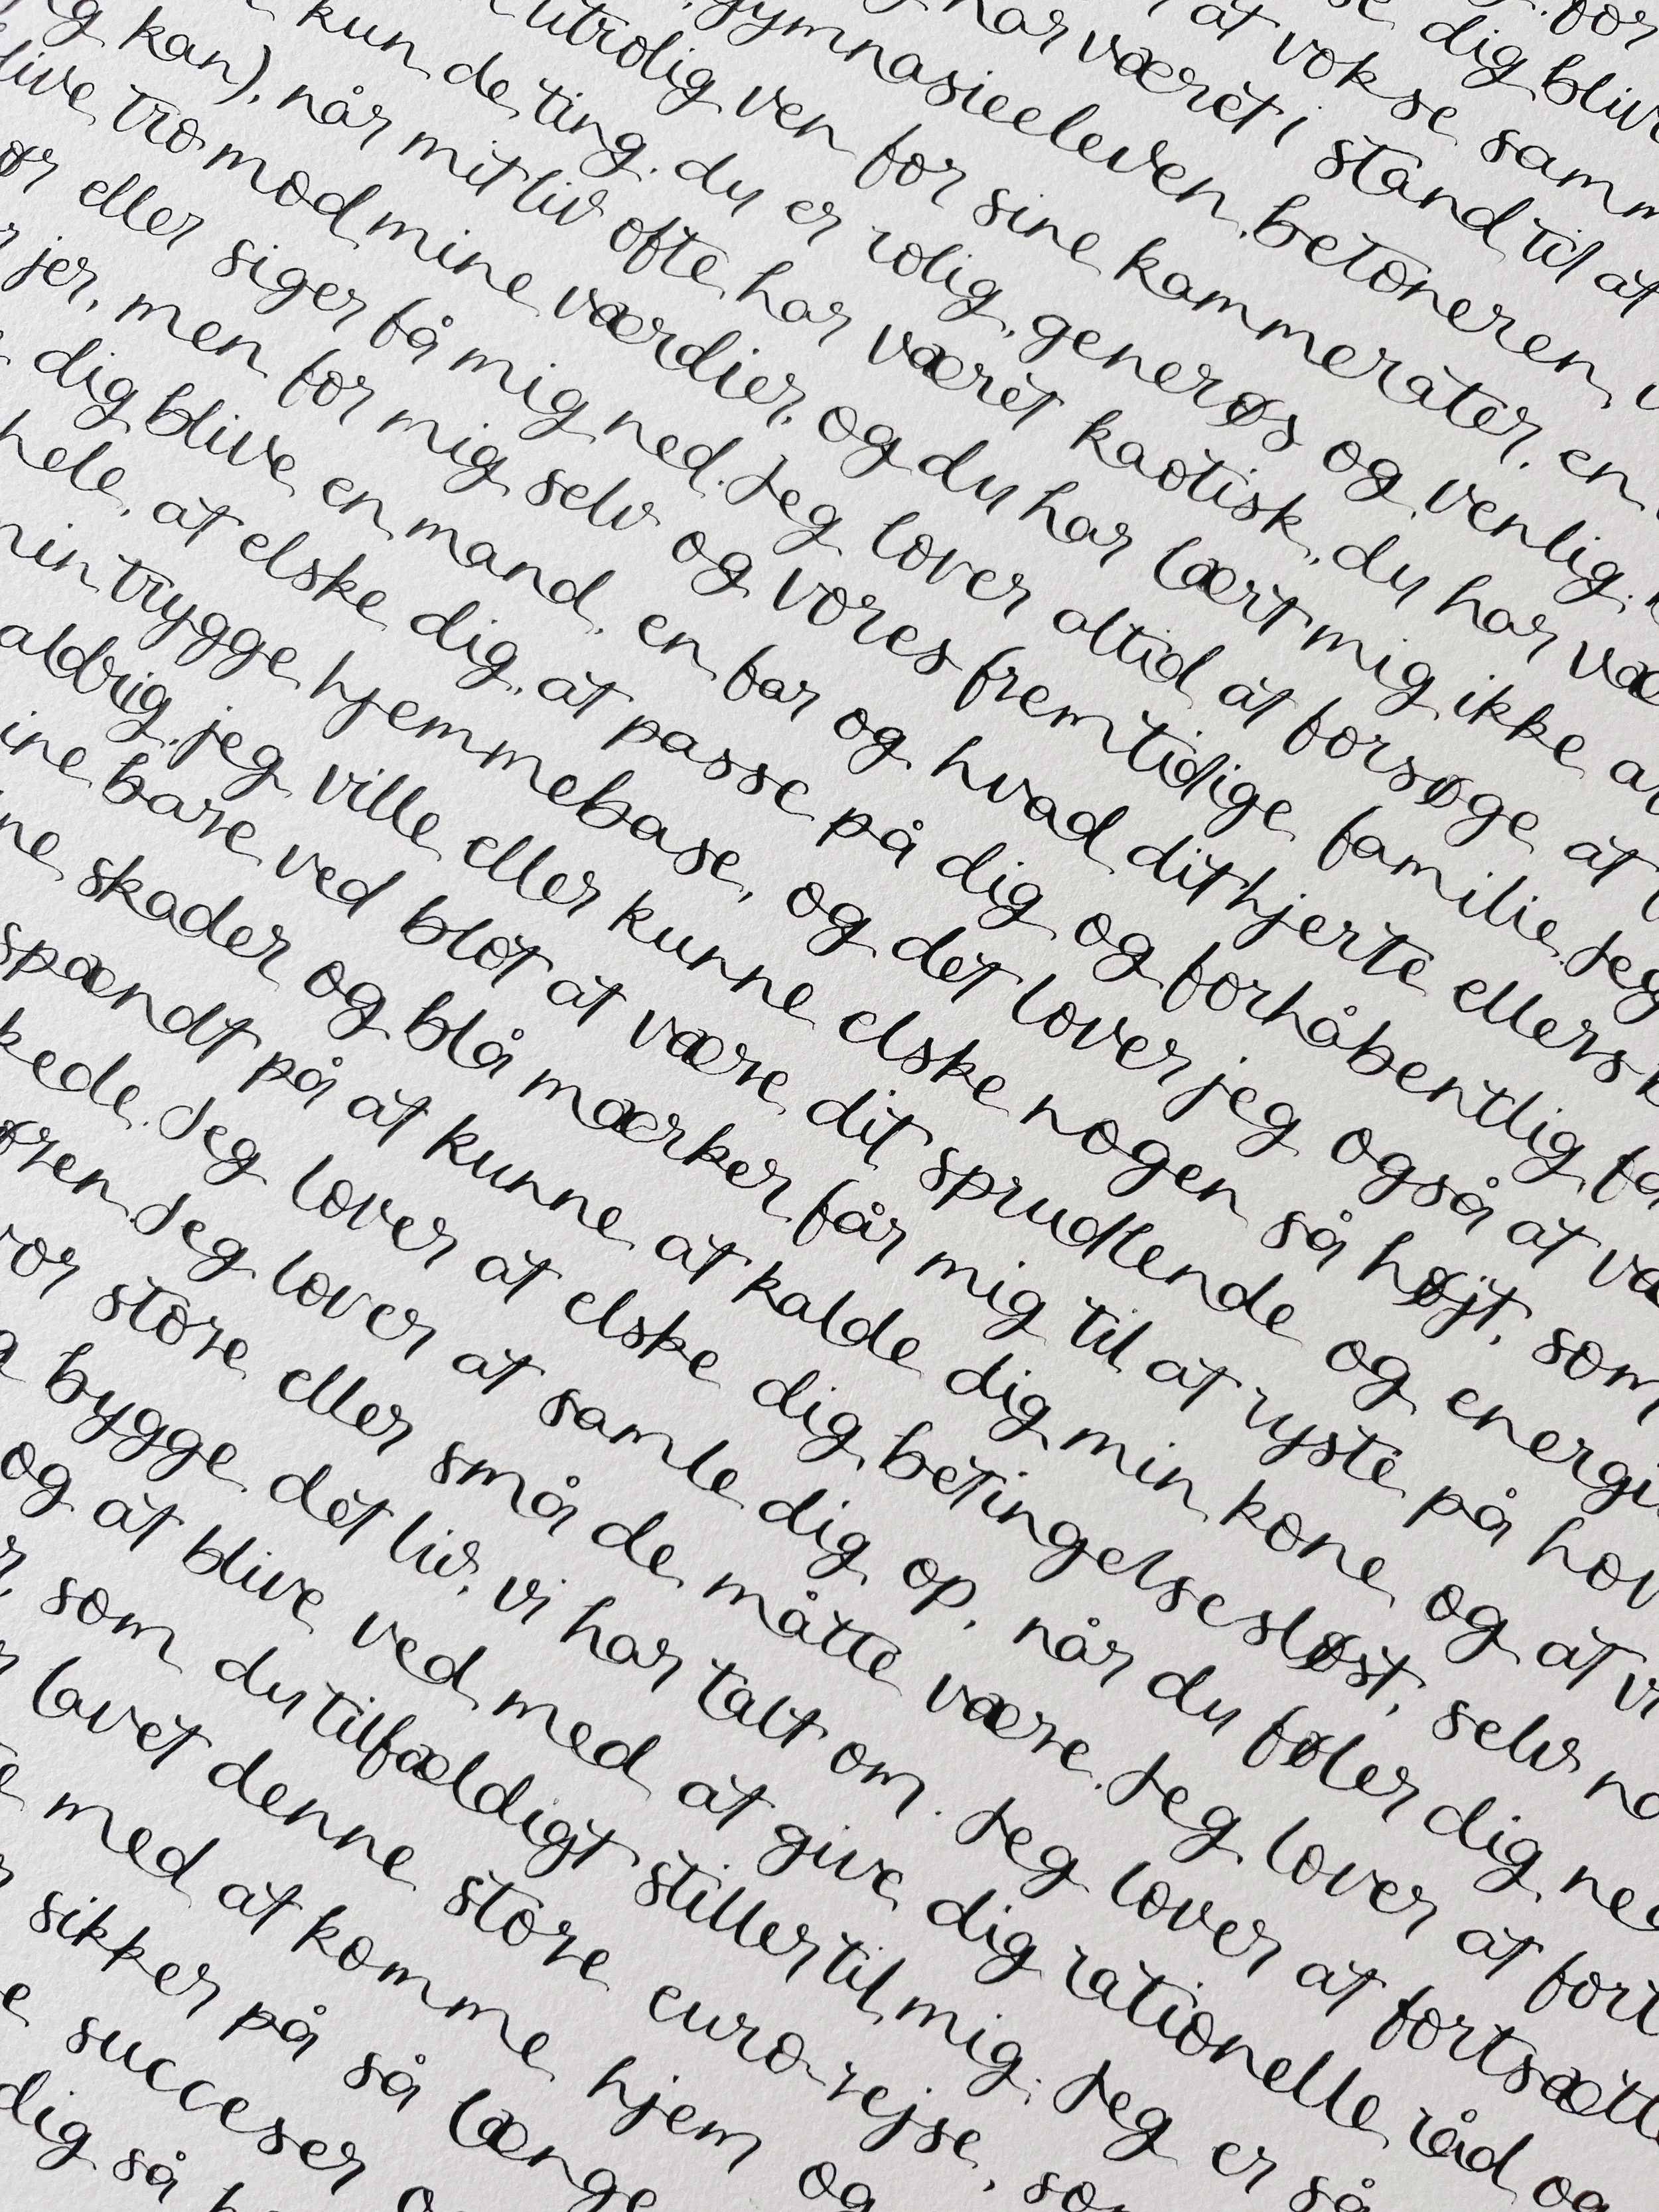 for
se dig blive
at vokse samm
har været i stand til at
gymnasieeleven, betoneren,
utrolig ven for sine kammerater, en
kun de ting. du er rolig, generøs og venlig.
g kan), når mit liv ofte har været kaotisk, du har væ
live tro mod mine værdier, og du har lært mig ikke a
ør eller siger få mig ned. Jeg lover altid at forsøge at
r jer, men for mig selv og vores fremtidige familie. Jeg
dig blive en mand, en far og hvad dit hjerte ellers
hele, at elske dig, at passe på dig og forhåbentlig få
min trygge hjemmebase, og det lover jeg også at væ
aldrig, jeg ville eller kunne elske nogen så højt, som
ine bare ved blot at være dit sprudlende og energi
ne skader og blå mærker får mig til at ryste på hov
spændt på at kunne at kalde dig min kone og at vi
kede. Jeg lover at elske dig betingelsesløst, selv nå
øren. Jeg lover at samle dig op, når du føler dig ned
vor store eller små de måtte være. Jeg lover at fort
g bygge det liv, vi har talt om. Jeg lover at fortsætte
og at blive ved med at give dig rationelle råd og
r, som du tilfældigt stiller til mig. Jeg er så
r lavet denne store euro-rejse, som
e med at komme hjem og
r sikker på så længe
e succeser o
dig så h